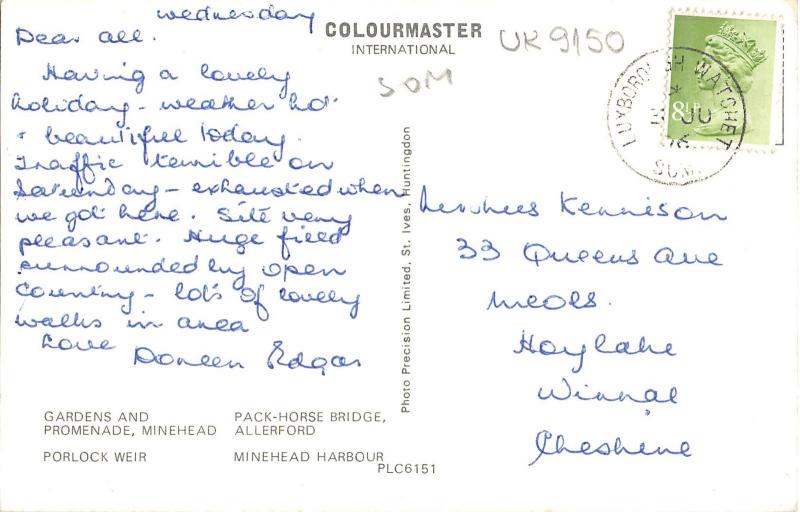 Wednesday
Dear all.
Having a lovely
holiday - weather hot
& beautiful today.
Traffic terrible on
Saturday - exhausted when
we got here. Site very
pleasant. Huge field
surrounded by open
country - lots of lovely
walks in area
Love
Doreen Edgar
GARDENS AND
PROMENADE, MINEHEAD
PORLOCK WEIR
PACK-HORSE BRIDGE,
ALLERFORD
MINEHEAD HARBOUR
PLC6151
COLOURMASTER
INTERNATIONAL
Photo Precision Limited, St. Ives, Huntingdon
UK 9150
SOM
8½P
LUXBOROUGH WATCHET
JU
SOM.
Kennison
33 Queens Ave
Meols.
Hoylake
Wirral
Cheshire